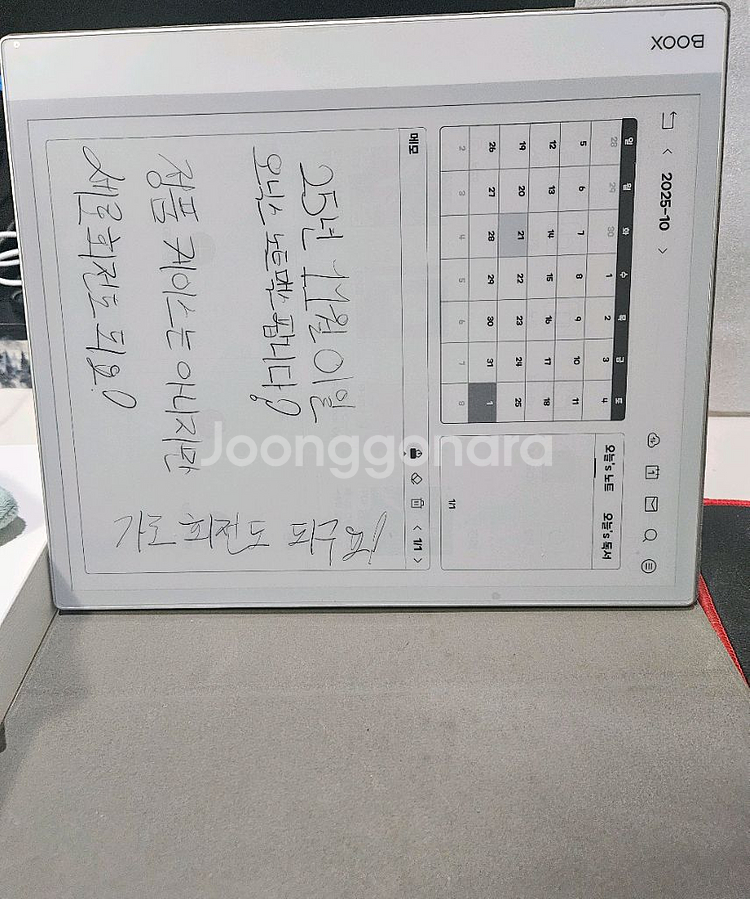 BOOX
2025-10
일 월 화 수 목 금 토
28 29 30 1 2 3 4
5 6 7 8 9 10 11
12 13 14 15 16 17 18
19 20 21 22 23 24 25
26 27 28 29 30 31 1
2 3 4 5 6 7 8
오늘's 노트 오늘's 독서
1/1
메모
1/1
25년 11월 01일
오닉스 노트맥스 팝니다!
정품 케이스는 아니지만
세로회전도 되요!
가로회전도 되구요!
Joonggonara